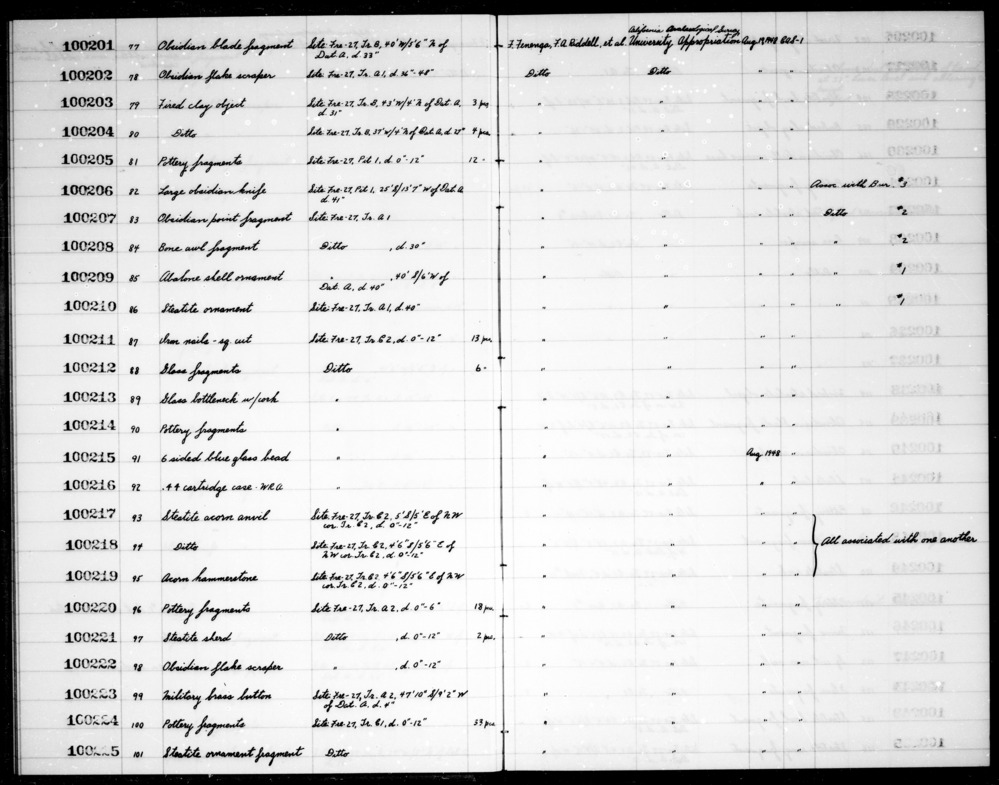 100201 77 Obsidian blade fragment Site Fre-27, Tr. B, 40' W/5'6" N of Dat. A, d. 33" F. Fenenga, F.A. Riddell, et al. California Archaeological Survey University Appropriation Aug 19, 1948 808-1
100202 78 Obsidian flake scraper Site Fre-27, Tr. A1, d. 36"-48" Ditto Ditto " "
100203 79 Fired clay object Site Fre-27, Tr. B, 43' W/4' N of Dat. A, d. 31" 3 pcs. " " " "
100204 80 Ditto Site Fre-27, Tr. B, 37' W/4' N of Dat. A, d. 27" 4 pcs. " " " "
100205 81 Pottery fragments Site Fre-27, Pit 1, d. 0"-12" 12 - " " " "
100206 82 Large obsidian knife Site Fre-27, Pit 1, 25' S/13'7" W of Dat. A d. 41" " " " " Assoc with Bur. #3
100207 83 Obsidian point fragment Site Fre-27, Tr. A1 " " " " Ditto #2
100208 84 Bone awl fragment Ditto , d. 30" " " " " " #2
100209 85 Abalone shell ornament " , 40' S/6' W of Dat. A, d. 40" " " " " " #1
100210 86 Steatite ornament Site Fre-27, Tr. A1, d. 40" " " " " " #1
100211 87 Iron nails - sq. cut Site Fre-27, Tr. C2, d. 0"-12" 13 pcs. " " " "
100212 88 Glass fragments Ditto 6 - " " " "
100213 89 Glass bottleneck w/cork " " " " "
100214 90 Pottery fragments " " " " "
100215 91 6 sided blue glass bead " " " Aug 1948 "
100216 92 .44 cartridge case - WRA " " " " "
100217 93 Steatite acorn anvil Site Fre-27, Tr. C2, 5' S/5' E of NW cor. Tr. C2, d. 0"-12" " " " "
100218 94 Ditto Site Fre-27, Tr. C2, 4'6" S/5'6" E of NW cor. Tr. C2, d. 0"-12" " " " " All associated with one another
100219 95 Acorn hammerstone Site Fre-27, Tr. C2, 4'6" S/5'6" E of NW cor. Tr. C2, d. 0"-12" " " " "
100220 96 Pottery fragments Site Fre-27, Tr. A2, d. 0"-6" 18 pcs. " " " "
100221 97 Steatite sherd Ditto , d. 0"-12" 2 pcs. " " " "
100222 98 Obsidian flake scraper " , d. 0"-12" " " " "
100223 99 Military brass button Site Fre-27, Tr. A2, 47'10" S/9'2" W of Dat. A, d. 4" " " " "
100224 100 Pottery fragments Site Fre-27, Tr. C1, d. 0"-12" 33 pcs. " " " "
100225 101 Steatite ornament fragment Ditto " " " "